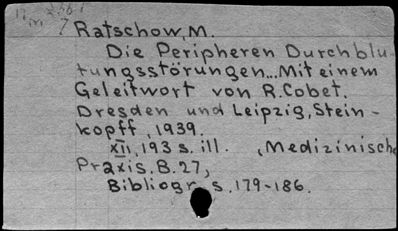 Ratschow, M.
Die Peripheren Durchblu-
tungsstörungen...Mit einem
Geleitwort von R. Cobet.
Dresden und Leipzig, Stein-
kopff, 1939.
XII, 193 s. ill. (Medizinische
Praxis. B. 27,
Bibliogr. s. 179-186.